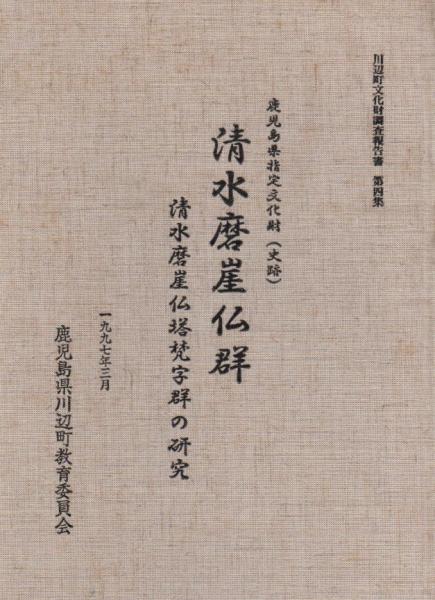 川辺町文化財調査報告書　第四集
鹿児島県指定文化財（史跡）
清水磨崖仏群
清水磨崖仏塔梵字群の研究
一九九七年三月
鹿児島県川辺町教育委員会